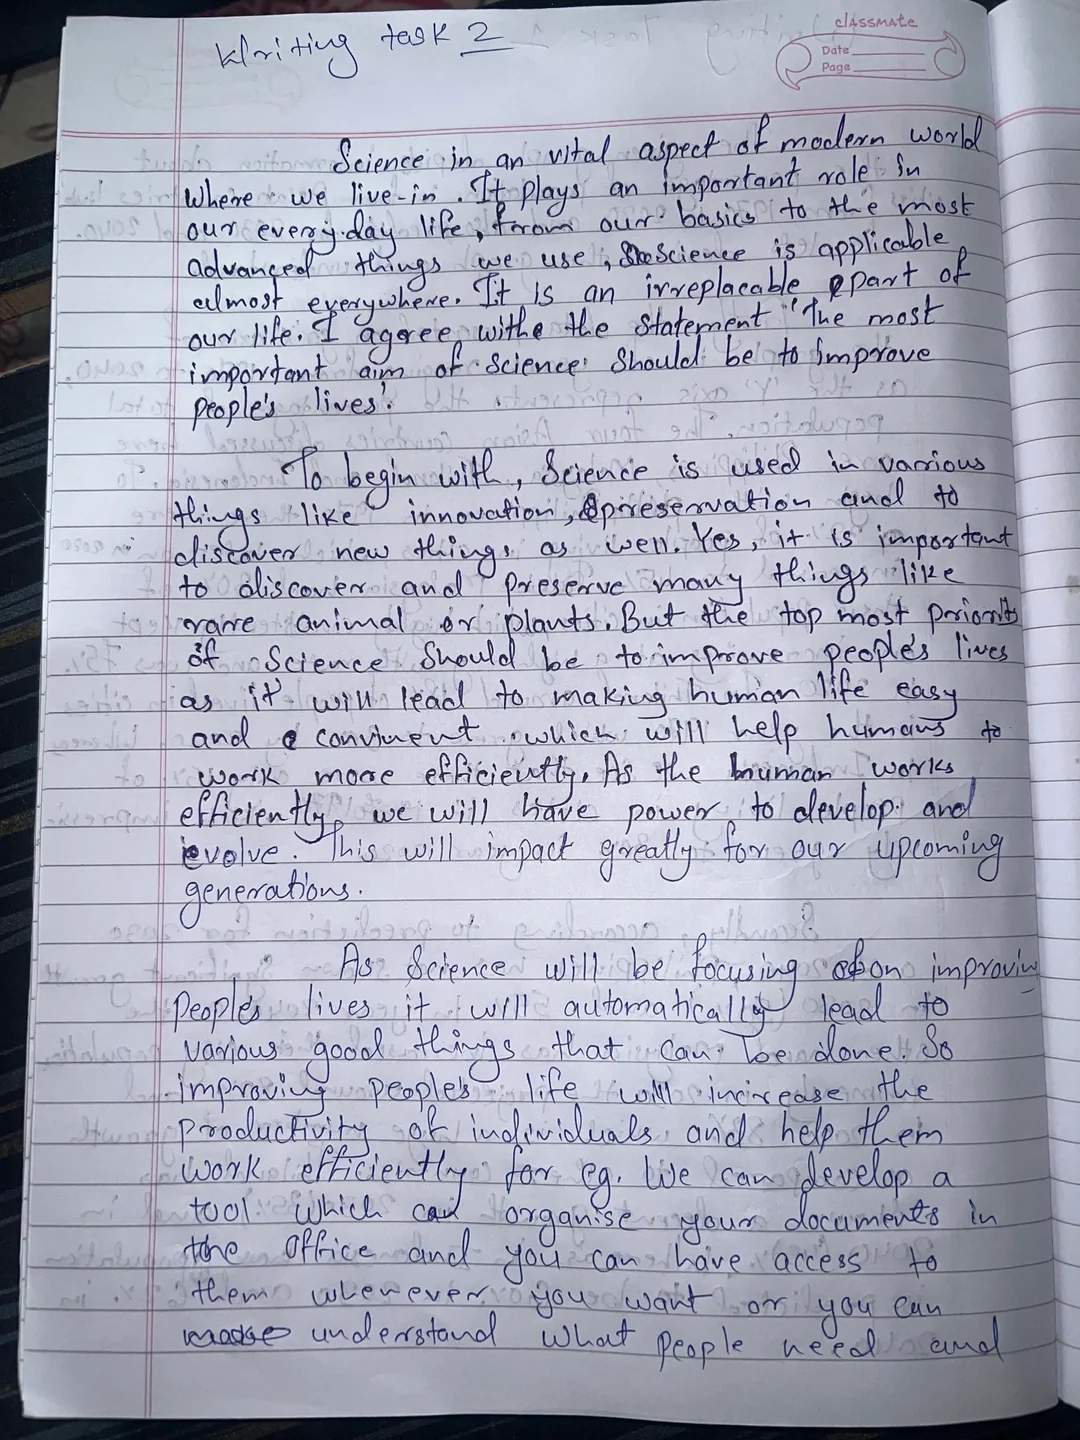 Writing task 2
classmate
Date
Page
Science in an vital aspect of modern world
where we live-in. It plays an important role in
our every.day life, from our basics to the most
advanced things we use, Science is applicable
almost everywhere. It is an irreplacable part of
our life. I agree withe the statement "The most
important aim of science should be to improve
people's lives'.
To begin with, Science is used in various
things like innovation, preservation and to
discover new things as well. Yes, it is important
to discover and preserve many things like
rare animal or plants. But the top most priority
of Science should be to improve people's lives
as it will lead to making human life easy
and convinent which will help humans to
work more efficiently. As the human works
efficiently we will have power to develop and
evolve. This will impact greatly for our upcoming
generations.
As Science will be focusing on improving
people's lives it will automatically lead to
various good things that can be done. So
improving people's life will increase the
productivity of individuals and help them
work efficiently for eg. We can develop a
tool which can organise your documents in
the office and you can have access to
them whenever you want or you can
understand what people need and